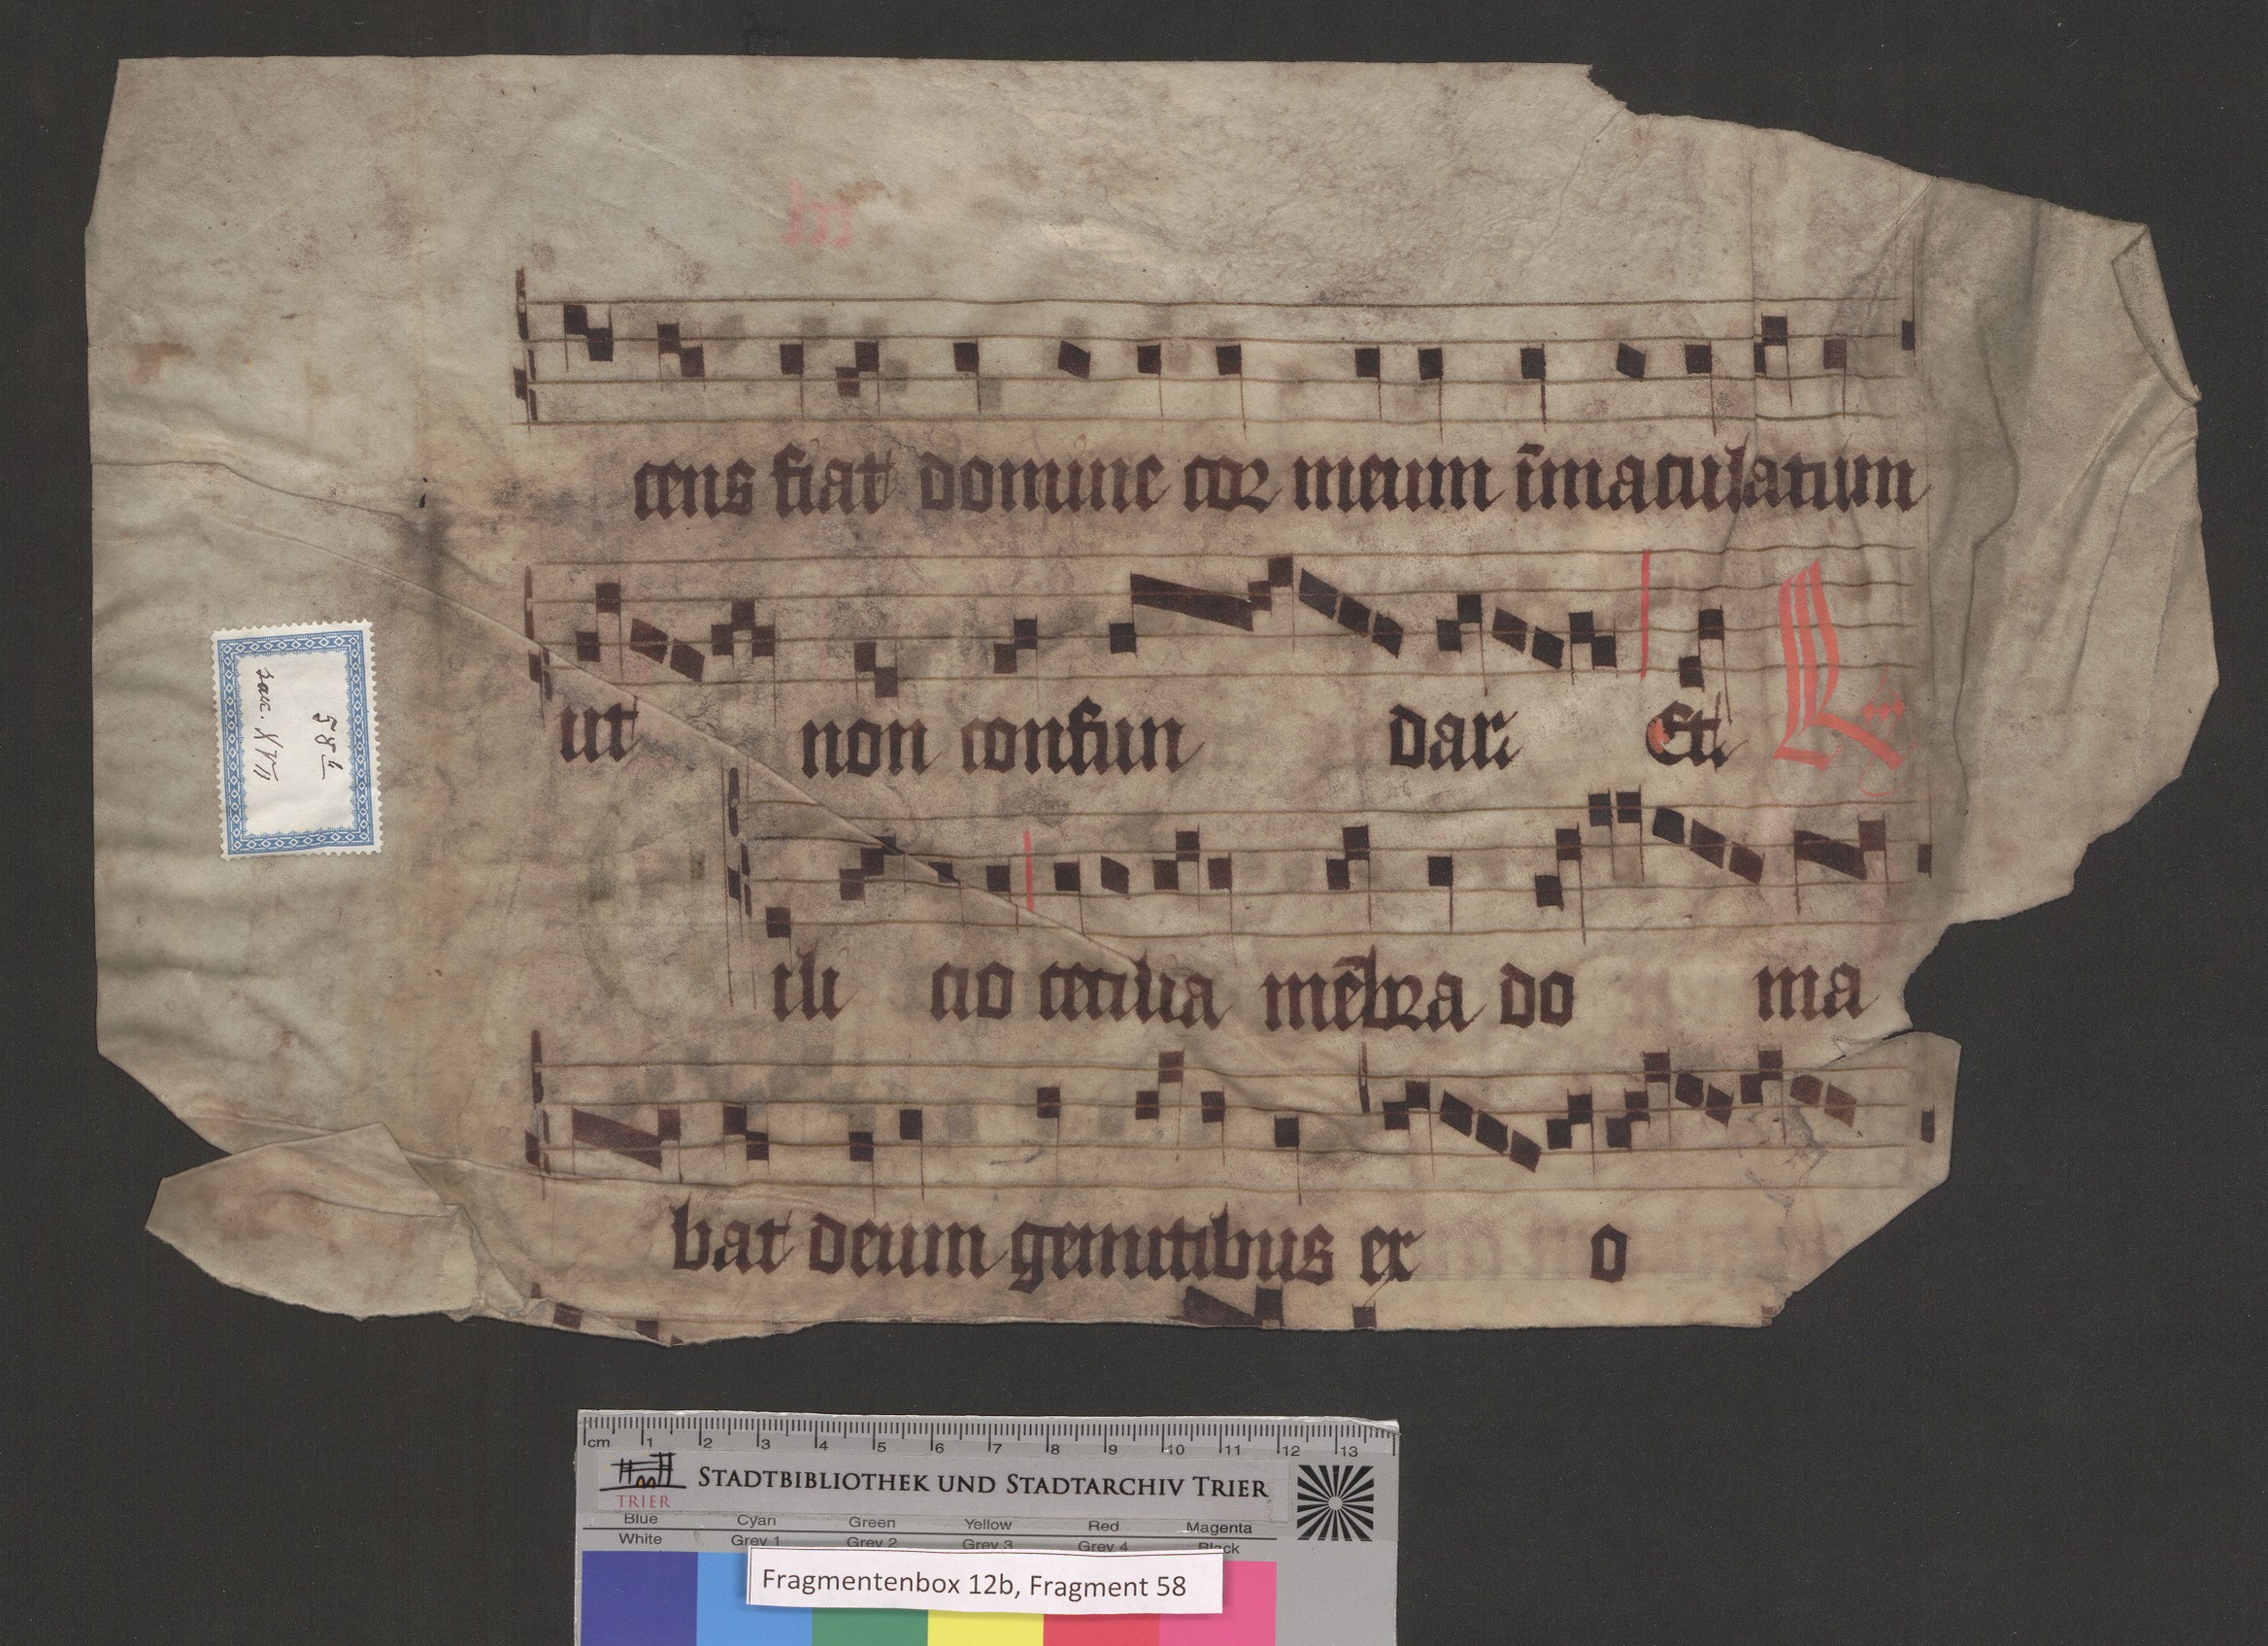 cens fiat domine cor meum īmaculatum
ut non confun dar. Et R
ili cio cecilia mēbra do ma
bat deum gemitibus ex o
58b
saec. XVI
cm 1 2 3 4 5 6 7 8 9 10 11 12 13
STADTBIBLIOTHEK UND STADTARCHIV TRIER
TRIER
Blue Cyan Green Yellow Red Magenta
White Grey 1 Grey 2 Grey 3 Grey 4 Black
Fragmentenbox 12b, Fragment 58